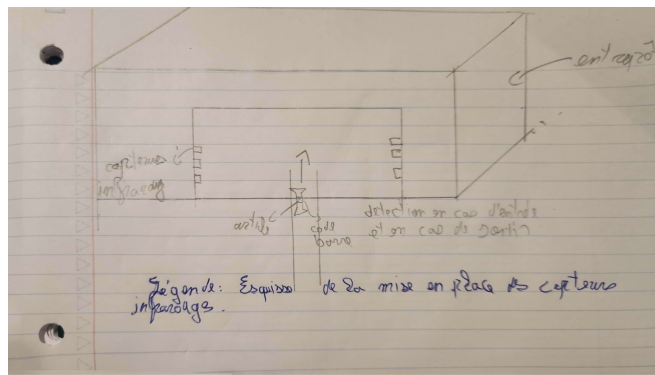 entrepôt
capteurs
infrarouges
article
code
barre
détection en cas d'entrée
et en cas de sortie
Légende: Esquisse de la mise en place des capteurs
infrarouges.